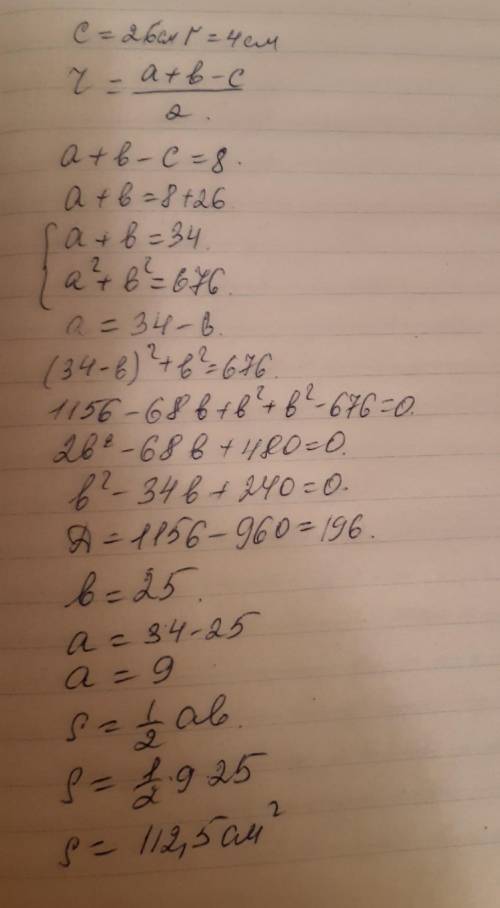 c = 26см r = 4см
r = (a+b-c)/2.
a+b-c=8.
a+b=8+26
{a+b=34.
a²+b²=676.
a=34-b.
(34-b)²+b²=676.
1156-68b+b²+b²-676=0.
2b²-68b+480=0.
b²-34b+240=0.
Д=1156-960=196.
b=25.
a=34-25
a=9
S=1/2 ab.
S=1/2·9·25
S=112,5см²